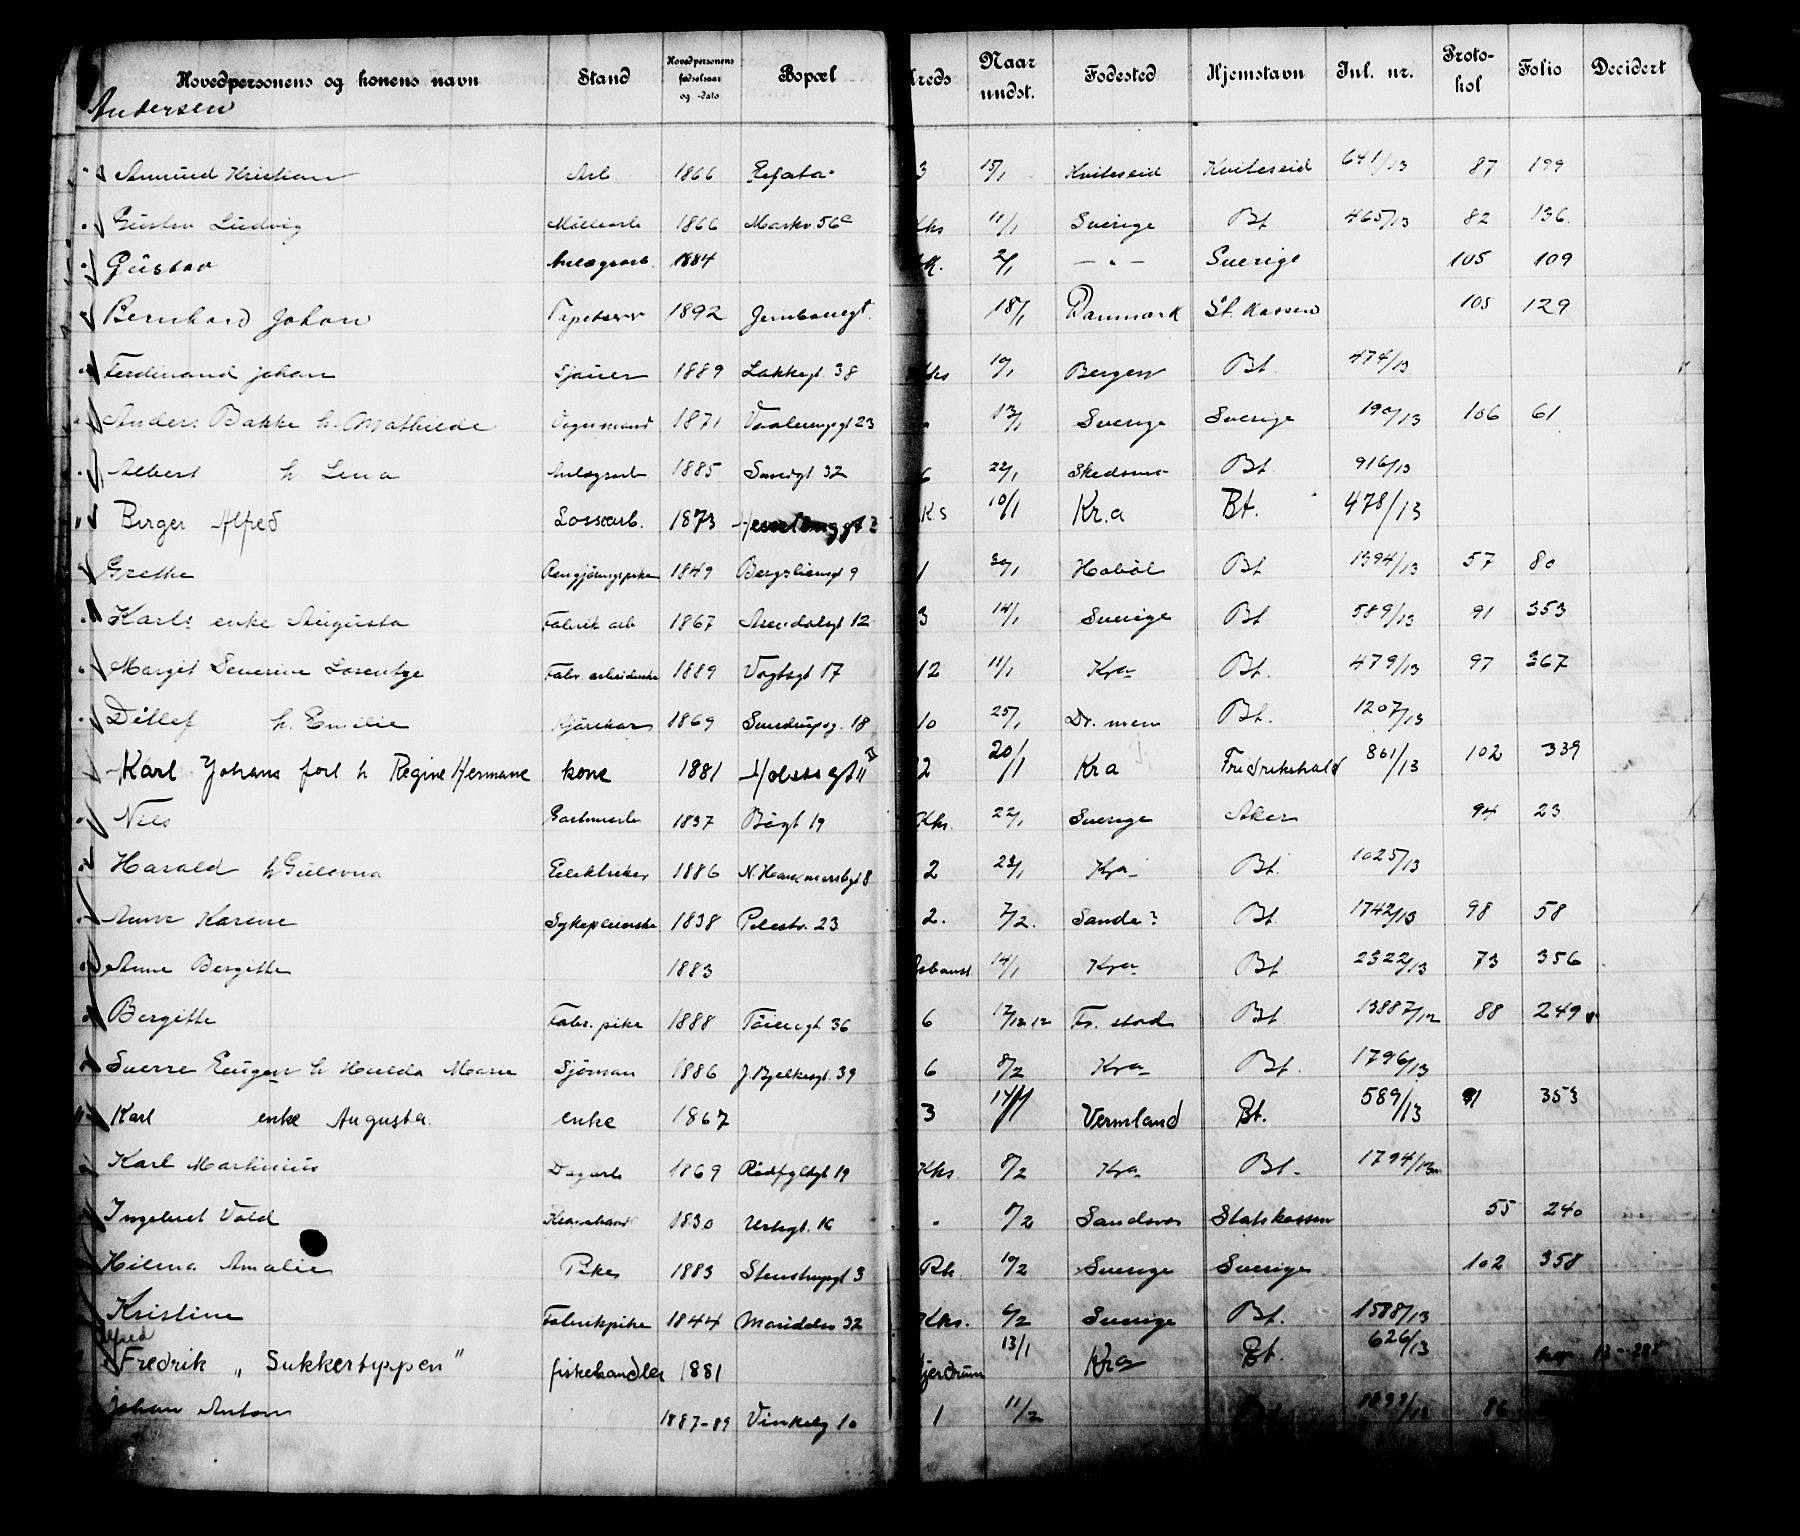 Hovedpersonens og konens navn Stand Hovedpersonens fødselsaar og -dato Bopæl Kreds Naar undst. Fødested Hjemstavn Inl. nr. Proto- kol Folio Decidert
Andersen
Amund Kristian Arb. 1866 3 15/1 Kviteseid Kviteseid 641/13 87 199
Gustav Ludvig Møllearb 1866 Markv 56c Kks 11/1 Sverige Bt 465/13 82 136
Gustav Anlægsarb. 1884 2/1 — " — Sverige 105 109
Bernhard Johan Tapetserer 1892 Jernbanegt. 18/1 Danmark St. Kassen 105 129
Ferdinand Johan Sjauer 1889 Lakkegt. 38 Kks 10/1 Bergen Bt. 474/13
Anders Bakke h. Mathilde Vognmand 1871 Vaalerengt 23 13/1 Sverige Sverige 190/13 106 61
Albert h. Lena Anlægsarb 1885 32 6 22/1 Skedsmo Bt 916/13
Birger Alfred Lossearb. 1873 Ks 10/1 Kr.a Bt. 478/13
Grethe Rengjøringspike 1849 Bergsliensgt 9 1 30/1 Hobøl Bt 1394/13 57 80
Karls enke Augusta Fabrik arb 1867 Arendalsgt 12 3 14/1 Sverige Bt 589/13 91 353
Margit Severine Lorentze Fabr. arbeiderske 1889 Vogtsgt 17 12 11/1 Kra Bt. 479/13 97 367
Ditlef h. Emilie Kjørekar 1869 Sundtspg. 18 10 25/1 Dr. men Bt. 1207/13
Karl Johans forl h Regine Hermane kone 1881 Holstsgt 11 II 2 20/1 Kra Fredrikshald 861/13 102 339
Nils Gartnerarb 1837 Bøgt 19 Kks. 22/1 Sverige Aker 94 23
Harald h Gulovna Elektriker 1886 N. Hammersbgt 8 2 23/1 Kra Bt. 1025/13
Anne Karine Sykepleierske 1838 Pilestr. 23 2. 7/2. Sande? Bt 1742/13 98 58
Anne Bergitte 1883 Arbanst 14/1 Kra Bt 2322/13 73 356
Bergitte Fabr. pike 1888 Tøiengt 36 6 17/12 12 Fr. stad Bt 13887/12 88 249
Sverre Eugen h Hulda Marie Sjømann 1886 J. Bjelkesgt. 39 6 8/2 Kra Bt. 1796/13
Karl enke Augusta enke 1867 3 14/1 Vermland Bt. 589/13 91 353
Karl Martinius Dagarb 1869 Rødfyldgt 19 Kks. 8/2 Kra Bt. 1794/13
Ingebret Vold 1830 Urtegt. 16 " 8/2 Statskassen 55 240
Hilma Amalie Pike 1883 Stenstrupgt 3 Rk 10/2 Sverige Sverige 102 358
Kristine Fabrikpike 1844 Maridalsv 32 Kks. 6/2 Sverige Bt. 1588/13
Alfred
Fredrik „ Sukkertyppen " fiskehandler 1881 Gjerdrum 13/1 Kra Bt. 626/13
Johan Anton 1887-89 Vinkelg 10 1 11/2 Bt 1899/13 86